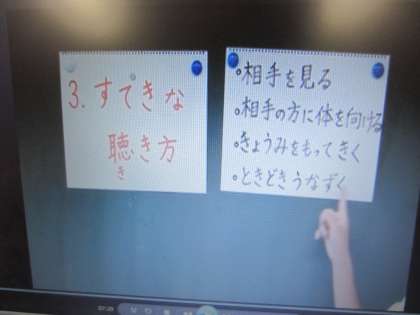 3. すてきな
聴き方
き
○相手を見る
○相手の方に体を向ける
○きょうみをもってきく
○ときどきうなずく